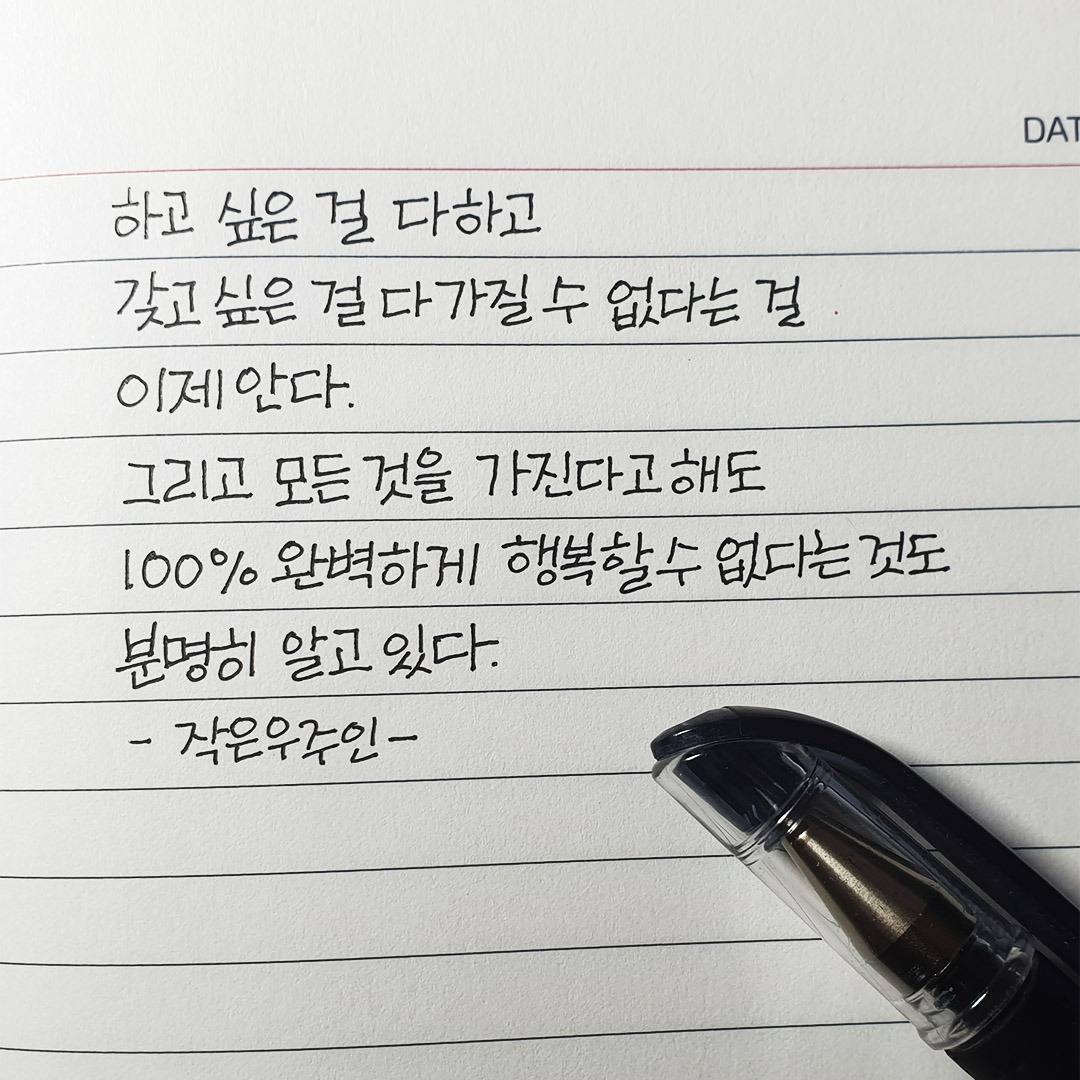 DAT
하고 싶은 걸 다하고
갖고 싶은 걸 다 가질 수 없다는 걸
이제 안다.
그리고 모든 것을 가진다고 해도
100% 완벽하게 행복할 수 없다는 것도
분명히 알고 있다.
- 작은우주인 -